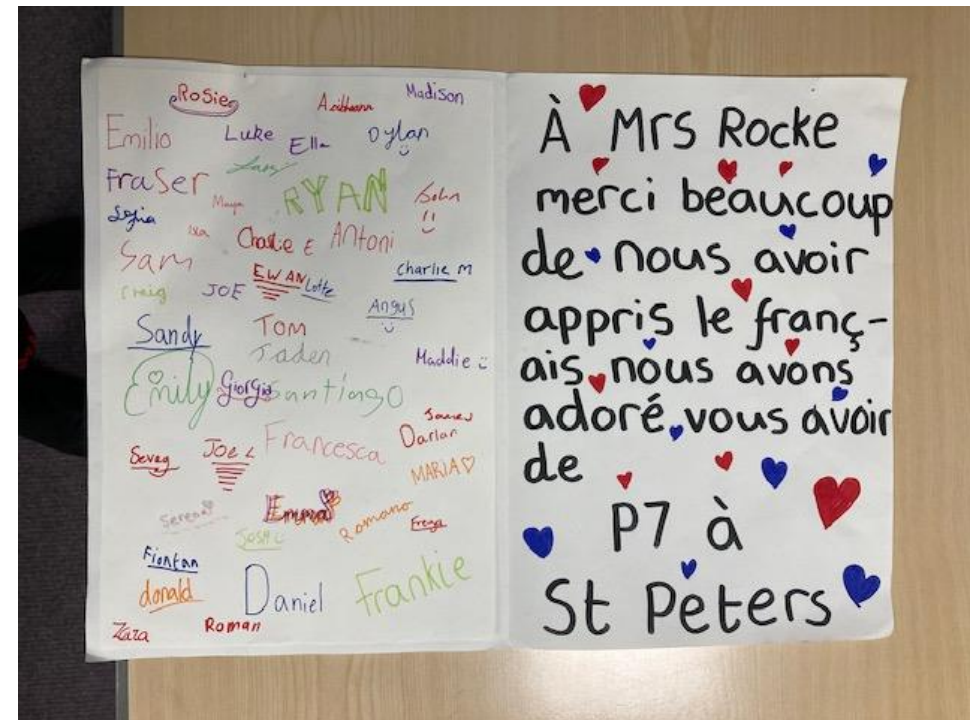 Rosie
Madison
Emilio
Luke
Ella
Dylan
Fraser
Maya
RYAN
Sofia
Isa
Charlie E
Antoni
Sam
EWAN
Lotte
Charlie M
Craig
JOE
Angus
Sandy
TOM
Jaden
Maddie
Emily
Giorgia
Santiago
James
Darlan
Francesca
JOE L
MARIA
Serena
Emma
Romano
Freya
JOSH
Fionton
donald
Daniel
Frankie
Zara
Roman
À Mrs Rocke
merci beaucoup
de nous avoir
appris le franç-
ais, nous avons
adoré vous avoir
de
P7 à
St Peters